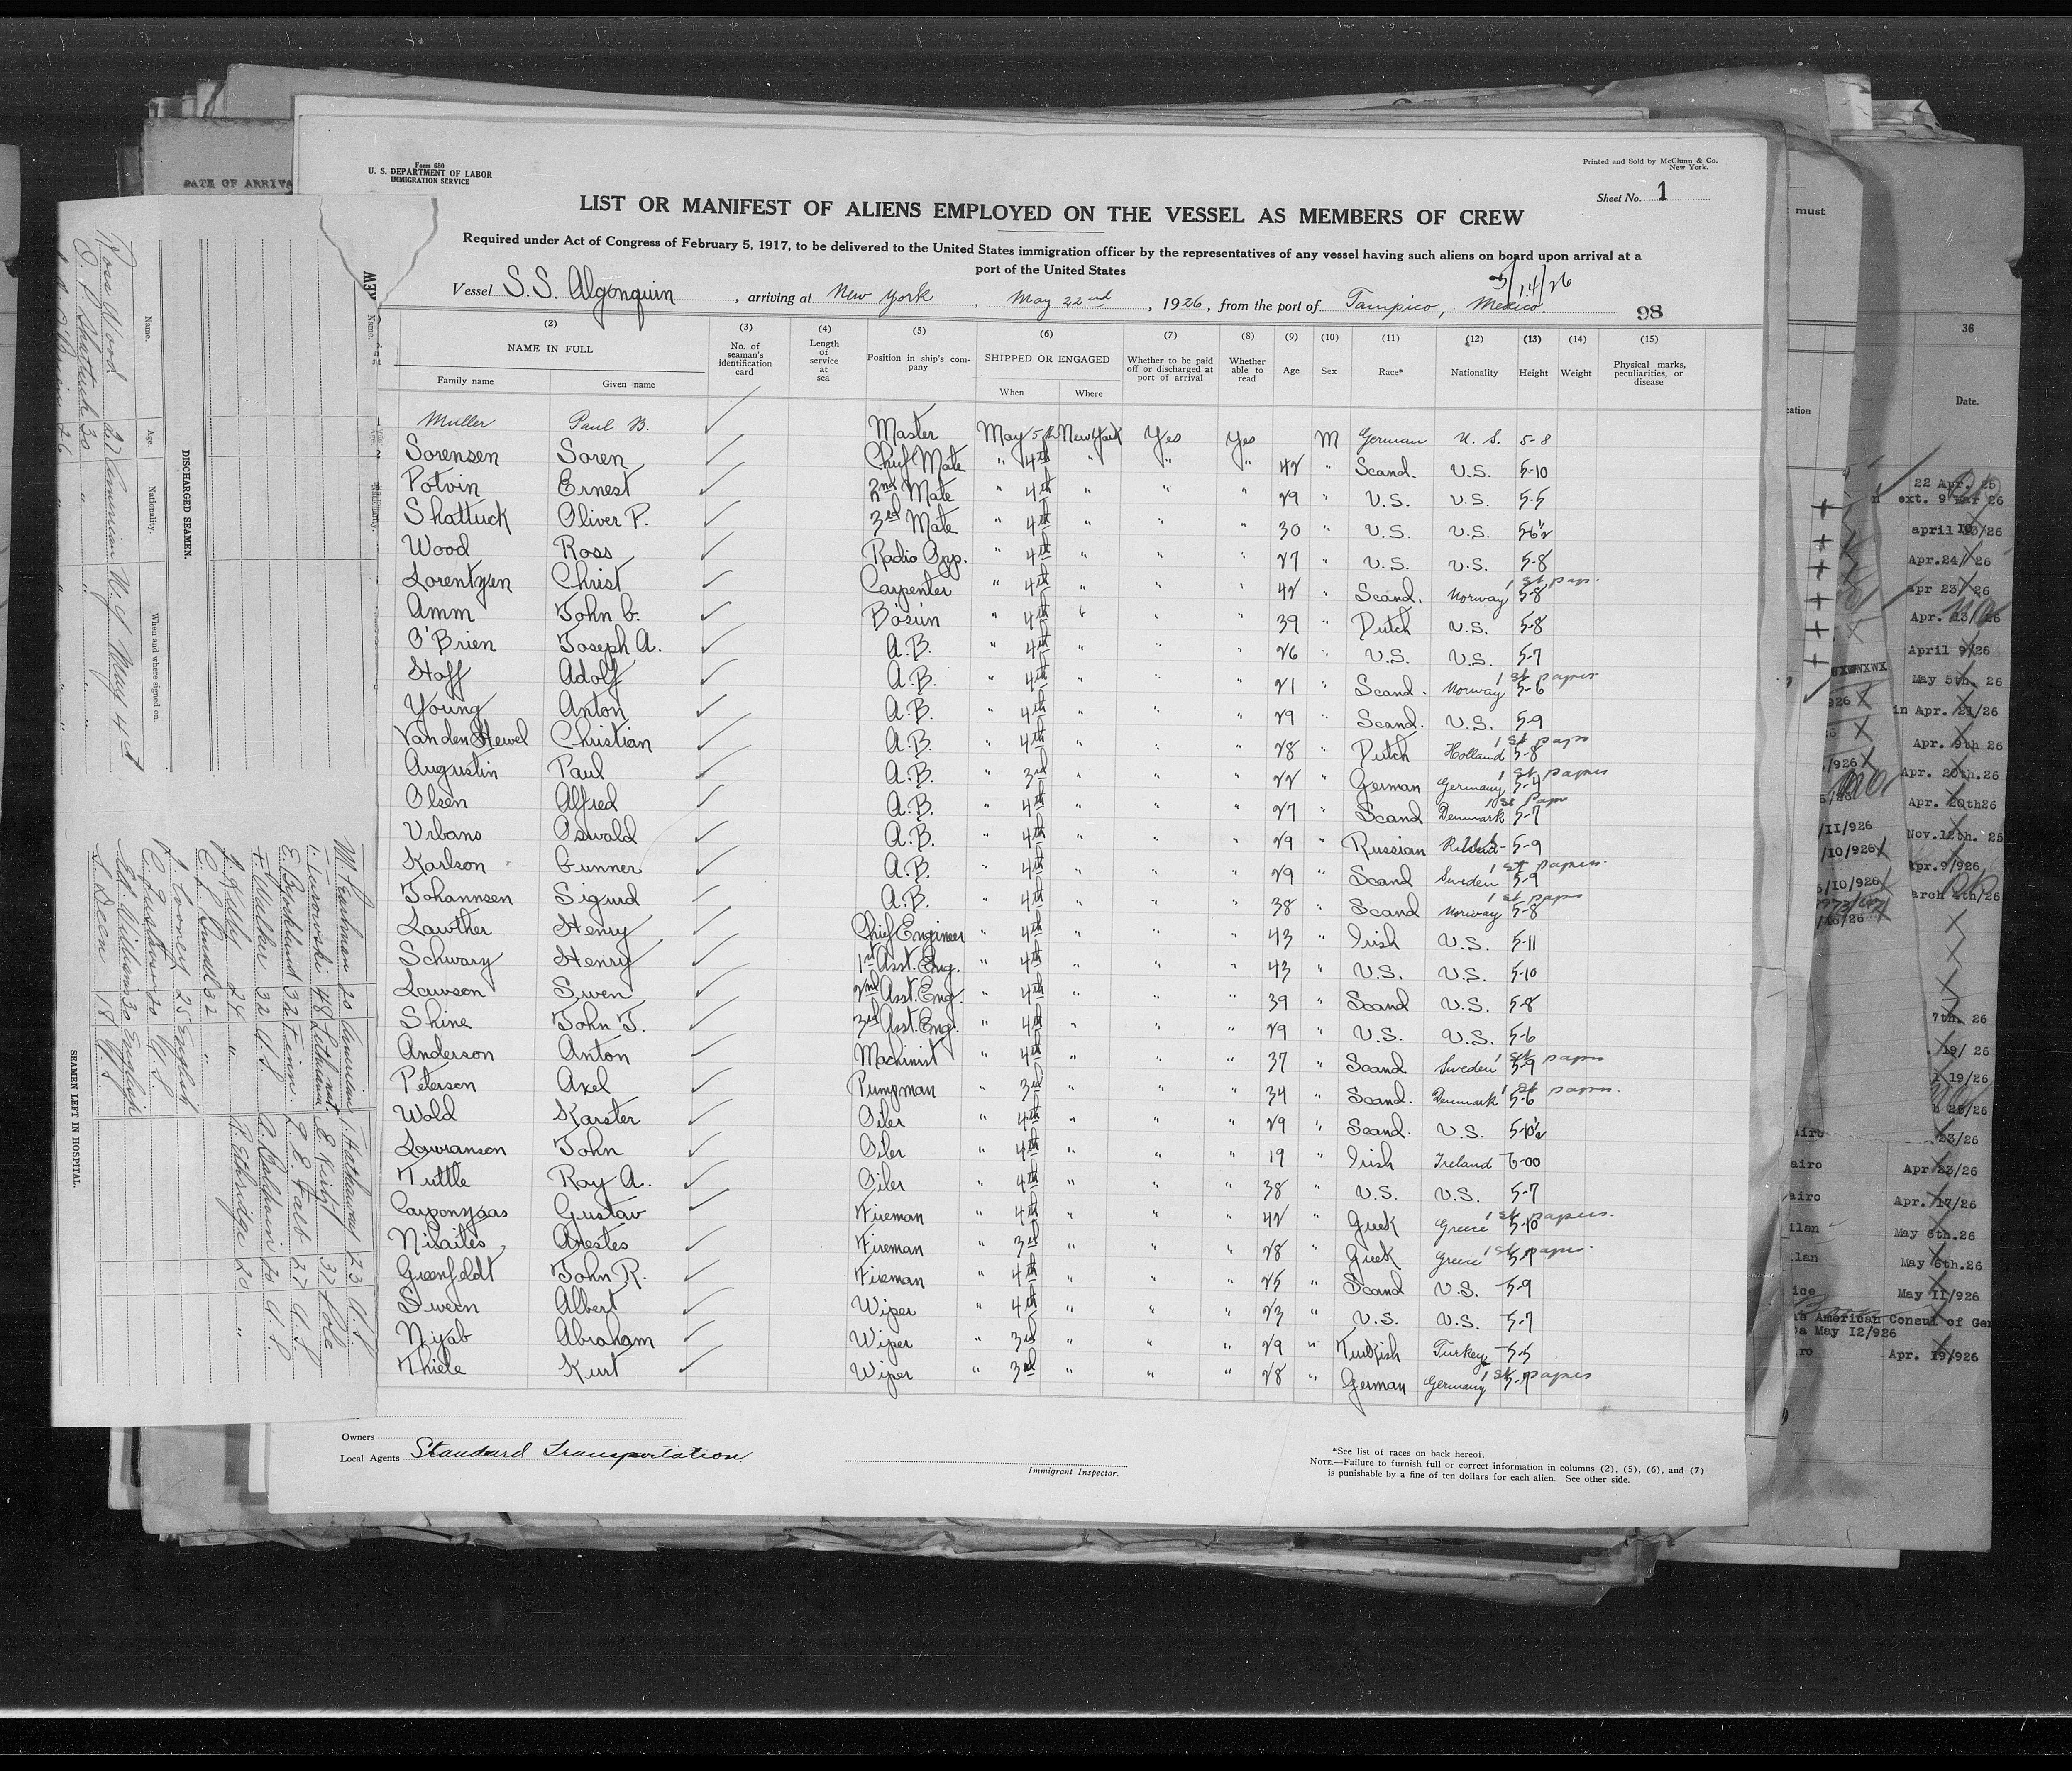 Form 680
U. S. DEPARTMENT OF LABOR
IMMIGRATION SERVICE
Printed and Sold by McClunn & Co.
New York.
Sheet No. 1
LIST OR MANIFEST OF ALIENS EMPLOYED ON THE VESSEL AS MEMBERS OF CREW
Required under Act of Congress of February 5, 1917, to be delivered to the United States immigration officer by the representatives of any vessel having such aliens on board upon arrival at a
port of the United States
5/14/26
Vessel S.S. Algonquin, arriving at New York, May 22nd, 1926, from the port of Tampico, Mexico.
98
(2) (3) (4) (5) (6) (7) (8) (9) (10) (11) (12) (13) (14) (15)
NAME IN FULL No. of seaman's identification card Length of service at sea Position in ship's company SHIPPED OR ENGAGED Whether to be paid off or discharged at port of arrival Whether able to read Age Sex Race* Nationality Height Weight Physical marks, peculiarities, or disease
Family name Given name When Where
Muller Paul B. Master May 5 New York Yes Yes M German U. S. 5-8
Sorensen Soren Chief Mate " 4th " " " 42 " Scand. U.S. 5-10
Potvin Ernest 2nd Mate " 4th " " " 29 " U.S. U.S. 5-5
Shattuck Oliver P. 3rd Mate " 4th " " " 30 " U.S. U.S. 5-6½
Wood Ross Radio Opp. " 4th " " " 27 " U.S. U.S. 5-8
Lorentzen Christ Carpenter " 4th " " " 42 " Scand. Norway 5-8 1st pap.
Amm John C. Bosun " 4th " " " 39 " Dutch U.S. 5-8
O'Brien Joseph A. A.B. " 4th " " " 26 " U.S. U.S. 5-7
Hoff Adolf A.B. " 4th " " " 21 " Scand. Norway 5-6 1st papers
Young Anton A.B. " 4th " " " 29 " Scand. U.S. 5-9
Christian A.B. " 4th " " " 28 " Dutch Holland 5-8 1st paps
Augustin Paul A.B. " 3rd " " " 22 " German Germany 5-4 1st papers
Olsen Alfred A.B. " 4th " " " 27 " Scand Denmark 5-7 1st Paps
Urbans Oswald A.B. " 4th " " " 29 " Russian 5-9
Karlson Gunner A.B. " 4th " " " 29 " Scand Sweden 5-9 1st papers.
Johannsen Sigurd A.B. " 4th " " " 38 " Scand Norway 5-8 1st paps
Lawther Henry Chief Engineer " 4th " " " 43 " Irish U.S. 5-11
Schwarz Henry 1st Asst. Eng. " 4th " " " 43 " U.S. U.S. 5-10
Lawson Swen 2nd Asst. Eng. " 4th " " " 39 " Scand U.S. 5-8
Shine John J. 3rd Asst. Eng. " 4th " " " 29 " U.S. U.S. 5-6
Anderson Anton Machinist " 4th " " " 37 " Scand Sweden 5-9 1st papers
Peterson Axel Pumpman " 3rd " " " 34 " Scand. Denmark 5-6 1st papers.
Wold Karster Oiler " 4th " " " 29 " Scand. U.S. 5-10½
Lawranson John Oiler " 4th " " " 19 " Irish Ireland 6-00
Tuttle Ray A. Oiler " 4th " " " 38 " U.S. U.S. 5-7
Gustav Fireman " 4th " " " 42 " Greek Greece 5-10 1st papers.
Nisaites Arestes Fireman " 3rd " " " 28 " Greek Greece 1st papers.
Greenfeldt John R. Fireman " 4th " " " 25 " Scand U.S. 5-9
Sween Albert Wiper " 4th " " " 23 " U.S. U.S. 5-7
Niyab Abraham Wiper " 3rd " " " 29 " Turkish Turkey 5-5
Thiele Kurt Wiper " 3rd " " " 28 " German Germany 5-7 1st papers
Owners
Local Agents Standard Transportation
Immigrant Inspector.
*See list of races on back hereof.
NOTE.—Failure to furnish full or correct information in columns (2), (5), (6), and (7)
is punishable by a fine of ten dollars for each alien. See other side.
DATE OF ARRIVA
DISCHARGED SEAMEN.
Name. Age. Nationality. When and where signed on.
Ross Wood 27 American N.Y. May 4th
O. P. Shattuck 30 " " "
J. A. O'Brien 26 " " "
SEAMEN LEFT IN HOSPITAL.
F. Walker 32 U.S.
J. Kelly 24 "
J. Cooney 25 English
C. Gustafson 20 U.S.
Ed. Williams 30 English
S. Deen 18 U.S.
J. Hathaway 23 U.S.
A. Baldwin 20 U.S.
R. Ethridge 20 "
must
36
Date.
22 Apr. 25
ext. 9 Mar 26
Apr.24/ 26
apr 23/ 26
Apr. 13/ 26
April 9/26
May 5th. 26
in Apr. 21/26
Apr. 9th 26
Apr. 20th.26
Apr. 20th26
Nov.12th. 25
Apr.9/926
arch 4th/26
7th. 26
19/ 26
1 19/26
h 25/26
23/26
airo Apr 23/26
airo Apr. 17/26
ilan May 6th.26
lan May 6th.26
ice May 11/926
American Consul of Gen
a May 12/926
ro Apr. 19/926